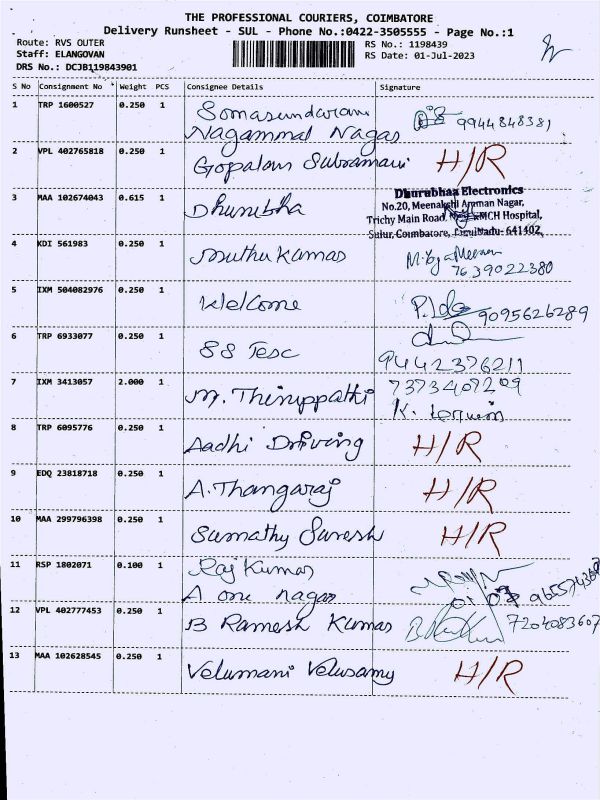 THE PROFESSIONAL COURIERS, COIMBATORE
Delivery Runsheet - SUL - Phone No.:0422-3505555 - Page No.:1
Route: RVS OUTER
Staff: ELANGOVAN
DRS No.: DCJB119843901
RS No.: 1198439
RS Date: 01-Jul-2023
S No Consignment No Weight PCS Consignee Details Signature
1 TRP 1600527 0.250 1 Somasundaram 9944848381
Nagammal Nagar
2 VPL 402765818 0.250 1 Gopalan Subramani H/R
3 MAA 102674043 0.615 1 Dhurubha
Dhurubhaa Electronics
No.20, Meenakshi Amman Nagar,
Trichy Main Road. RMCH Hospital,
Sulur, Coimbatore, Tamilnadu- 641402
4 KDI 561983 0.250 1 Muthu Kumar
7639022380
5 IXM 504082976 0.250 1 Welcome 9095626289
6 TRP 6933077 0.250 1 SS Tesc
9442376211
7 IXM 3413057 2.000 1 M. Thiruppathi 7373407209
8 TRP 6095776 0.250 1 Aadhi Driving H/R
9 EDQ 23818718 0.250 1 A. Thangaraj H/R
10 MAA 299796398 0.250 1 Sumathy Suresh H/R
11 RSP 1802071 0.100 1 Raj Kumar
A one nagar
12 VPL 402777453 0.250 1 B Ramesh Kumar 7204083607
13 MAA 102628545 0.250 1 Velumani Velusamy H/R